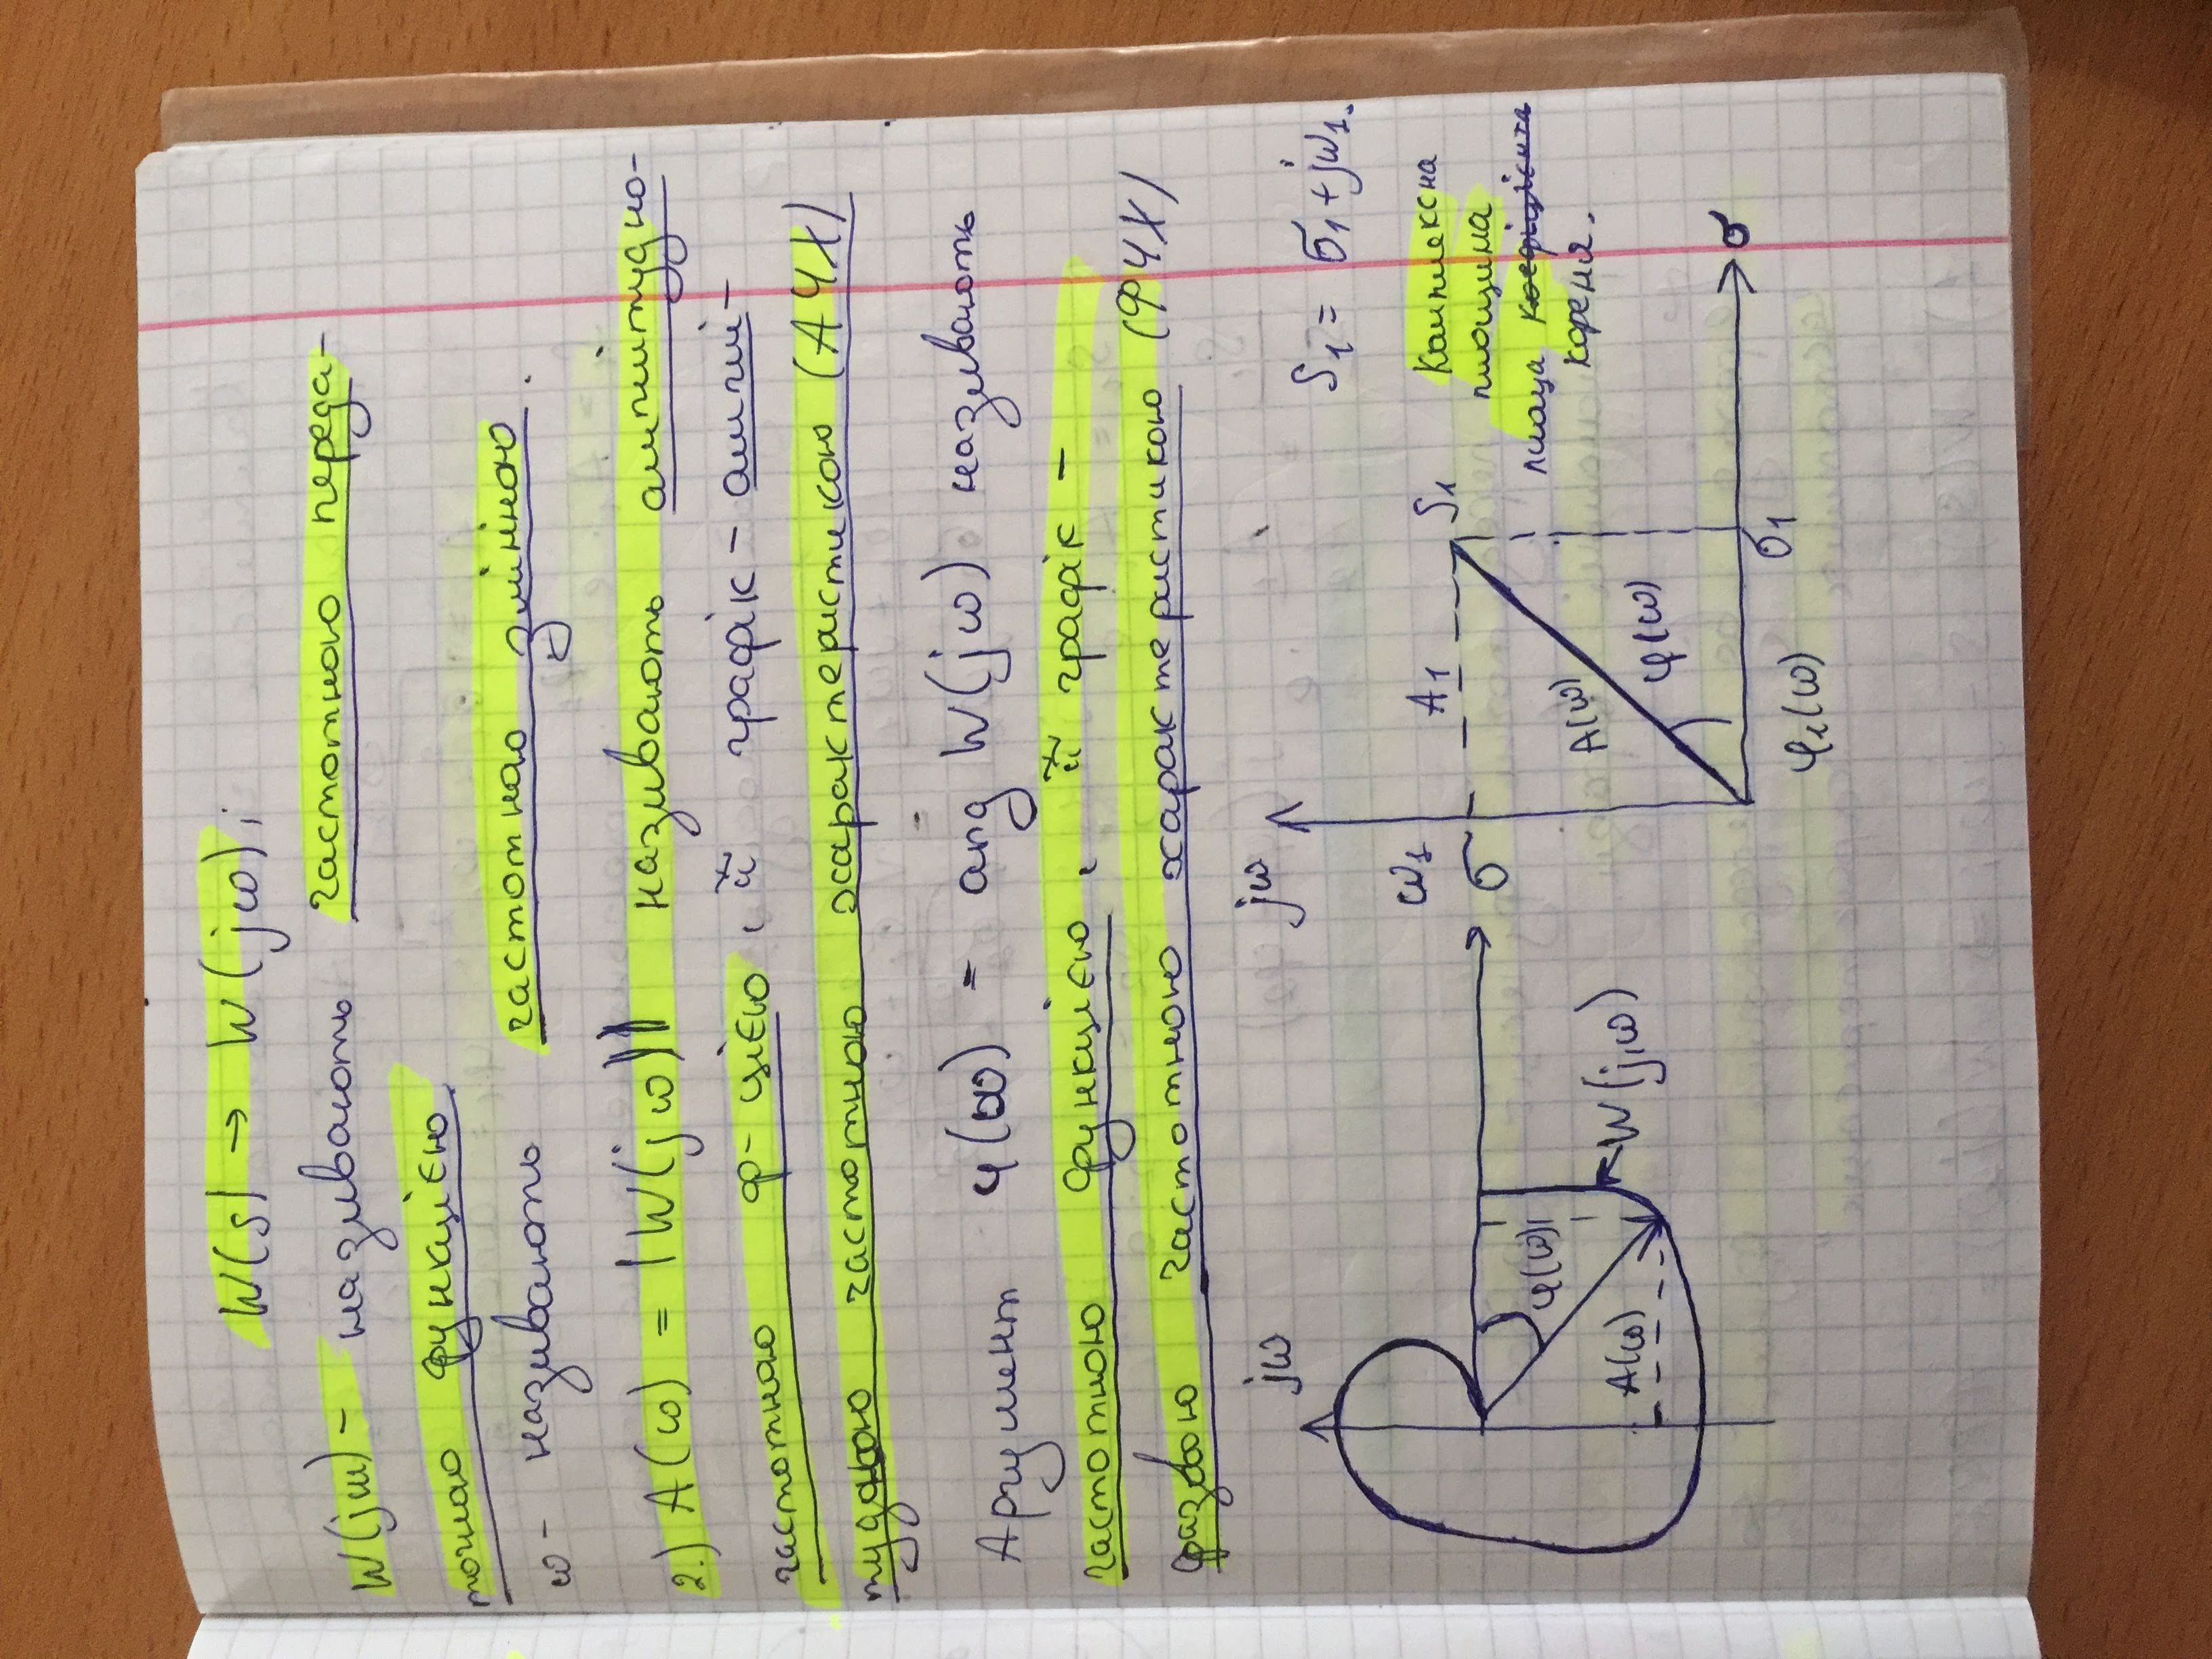 W(s) → W(jω);
W(jω) - називають частотною переда-
точною функцією.
ω - називають частотною змінною.
2.) A(ω) = |W(jω)| називають амплітудно-
частотною ф-цією, її графік - амплі-
тудною частотною характеристикою (АЧХ)
Аргумент φ(ω) = arg W(jω) називають
частотною функцією, її графік -
фазовою частотною характеристикою (ФЧХ)
jω
jω
S1 = σ1 + jω1.
ω1
A1
S1
Комплексна
площина
σ
φ(ω)
A(ω)
кореня.
A(ω)
W(jω)
φ(ω)
σ
σ1
φ1(ω)